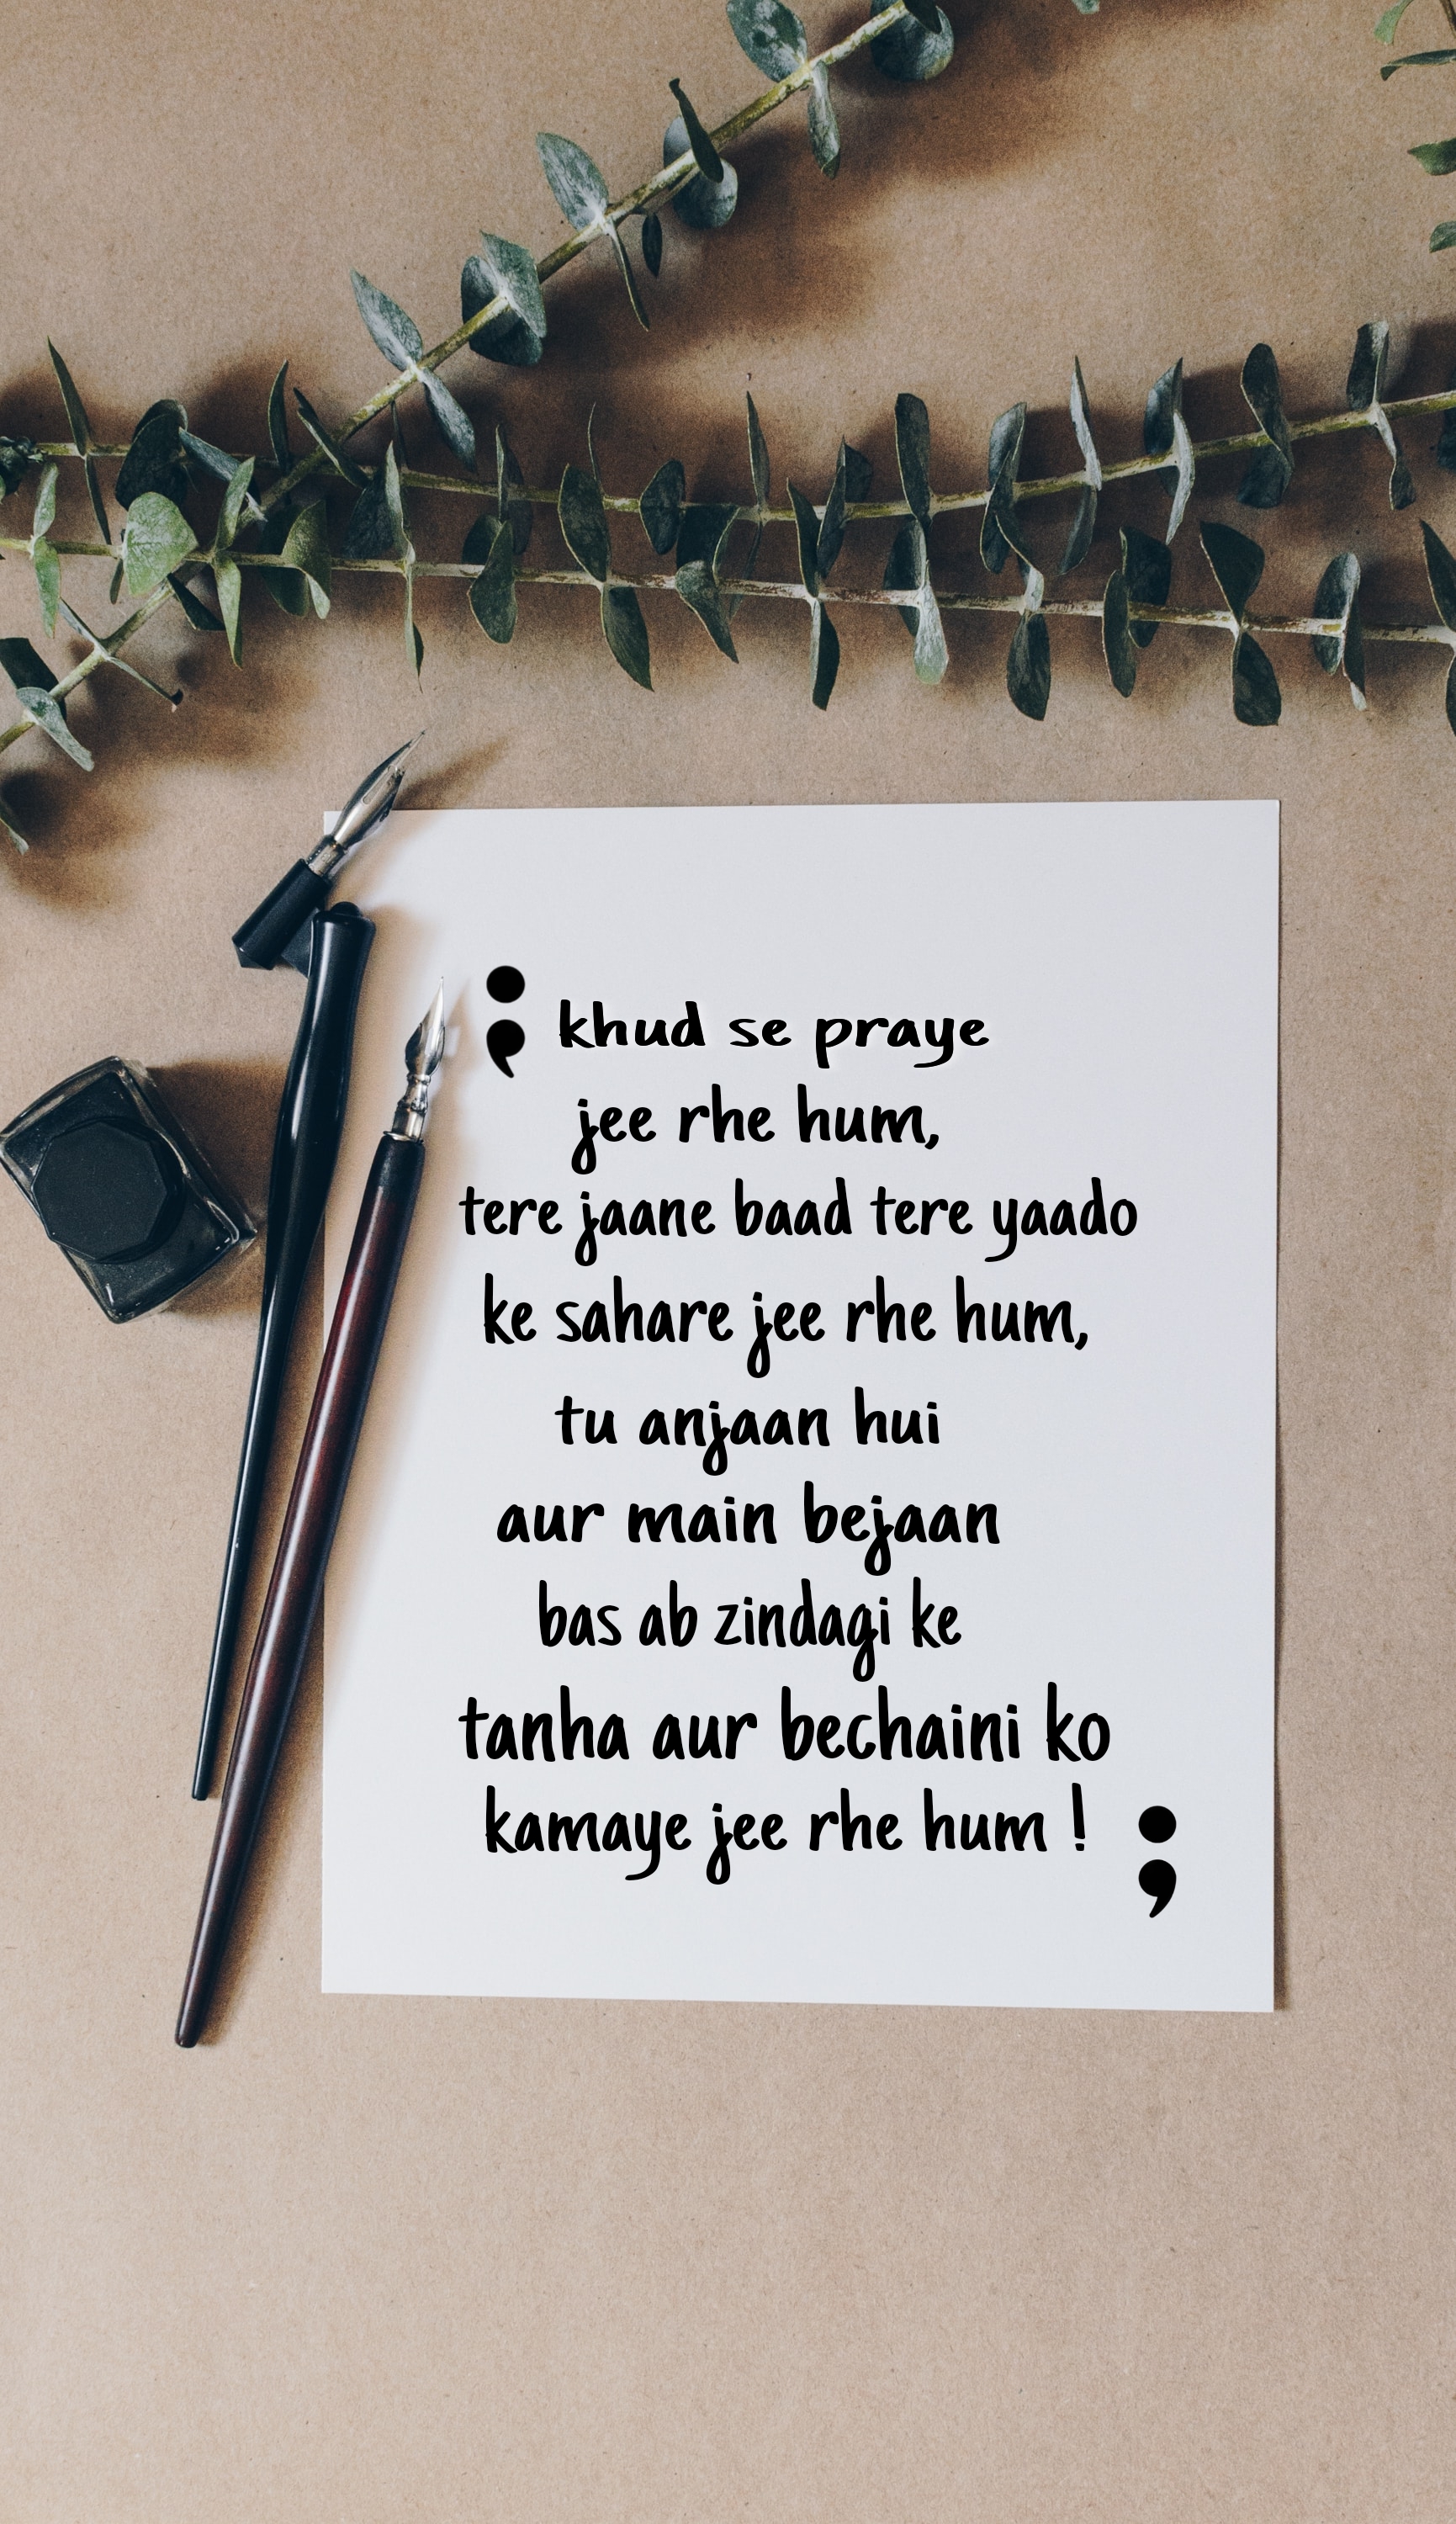 ; khud se praye
jee rhe hum,
tere jaane baad tere yaado
ke sahare jee rhe hum,
tu anjaan hui
aur main bejaan
bas ab zindagi ke
tanha aur bechaini ko
kamaye jee rhe hum !
;